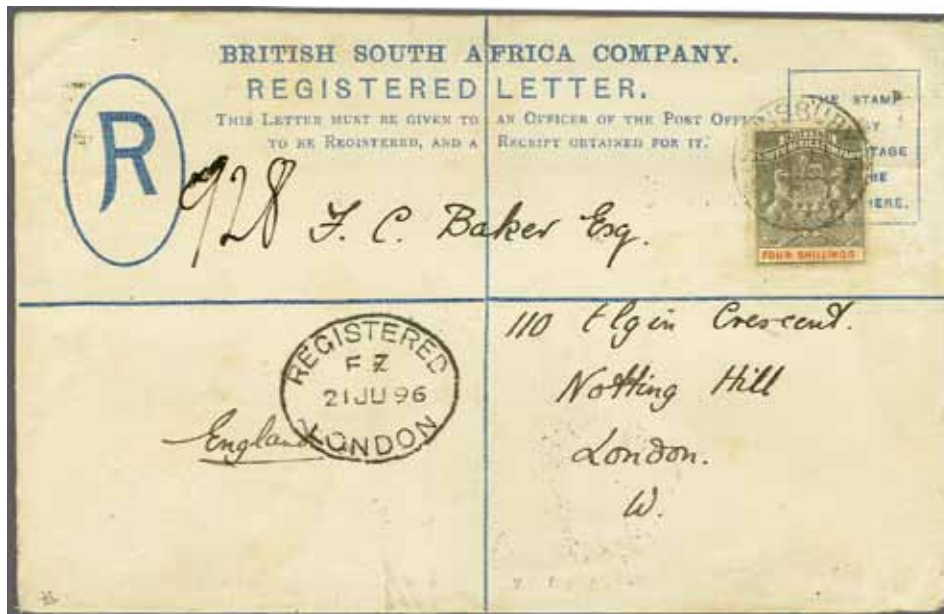 BRITISH SOUTH AFRICA COMPANY.
REGISTERED LETTER.
THIS LETTER MUST BE GIVEN TO AN OFFICER OF THE POST OFFICE
TO BE REGISTERED, AND A RECEIPT OBTAINED FOR IT.
R
THE STAMP
TAGE
BE
HERE.
SOUTH AFRICA COMPANY
FOUR SHILLINGS
928 F. C. Baker Esq.
110 Elgin Crescent.
Notting Hill
London.
W.
REGISTERED
FZ
21 JU 96
LONDON
England